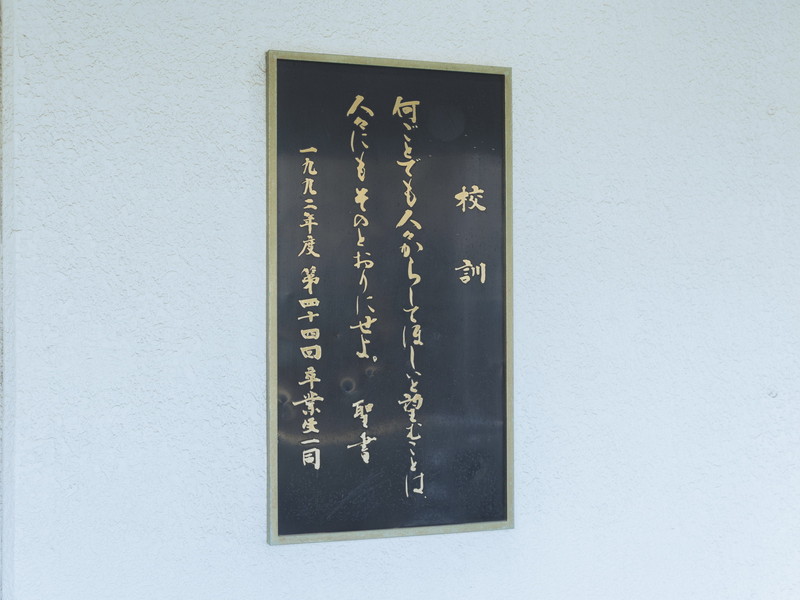 校訓
何ごとでも人々からしてほしいと望むことは
人々にもそのとおりにせよ。 聖書
一九九二年度 第四十四回 卒業生一同